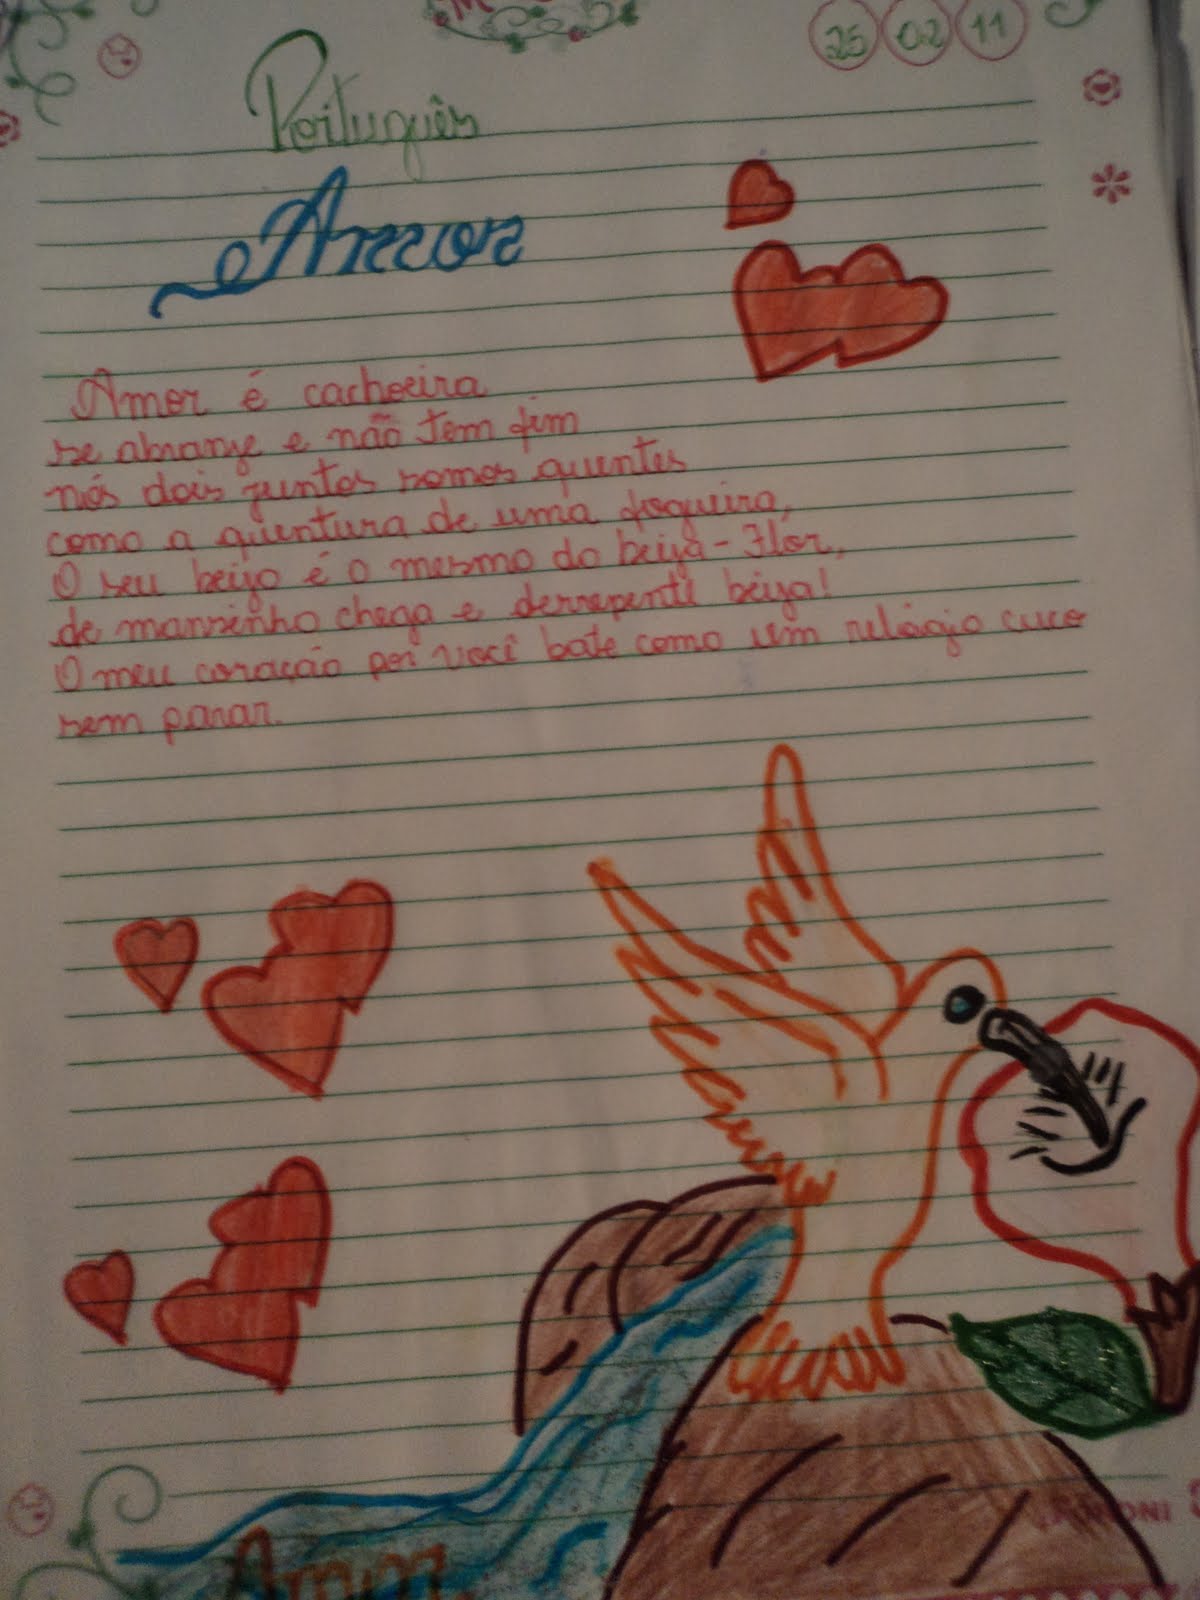 25 02 11
Português
Amor
Amor é cachoeira
se abranje e não tem fim
nós dois juntos somos quentes
como a quentura de uma fogueira,
O seu beijo é o mesmo do beija-Flór,
de mansinho chega e derrepente beija!
O meu coração por você bate como um relógio cuco
sem parar.
Amor